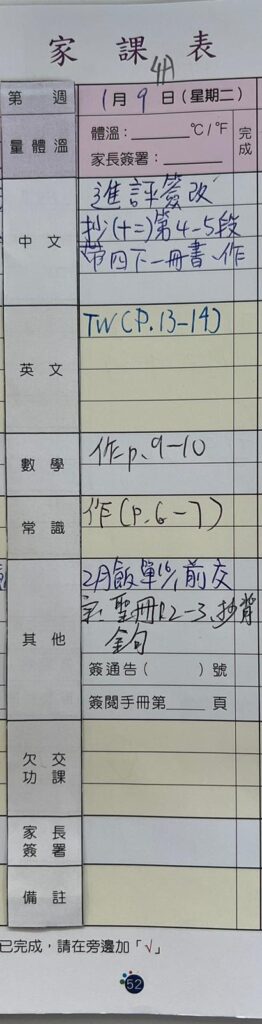 家課表
4A
第 週 1月9日(星期二) 完成
量體溫 體溫:______°C/°F
家長簽署:______
中文 進評簽改
抄(十二)第4-5段
帶四下一冊書、作
英文 TW(P.13-14)
數學 作p.9-10
常識 作(p.6-7)
其他 2月飯單16/1前交
聖冊P.2-3、抄背
金句
簽通告( )號
簽閱手冊第____頁
欠交功課
家長簽署
備註
已完成,請在旁邊加「√」
52